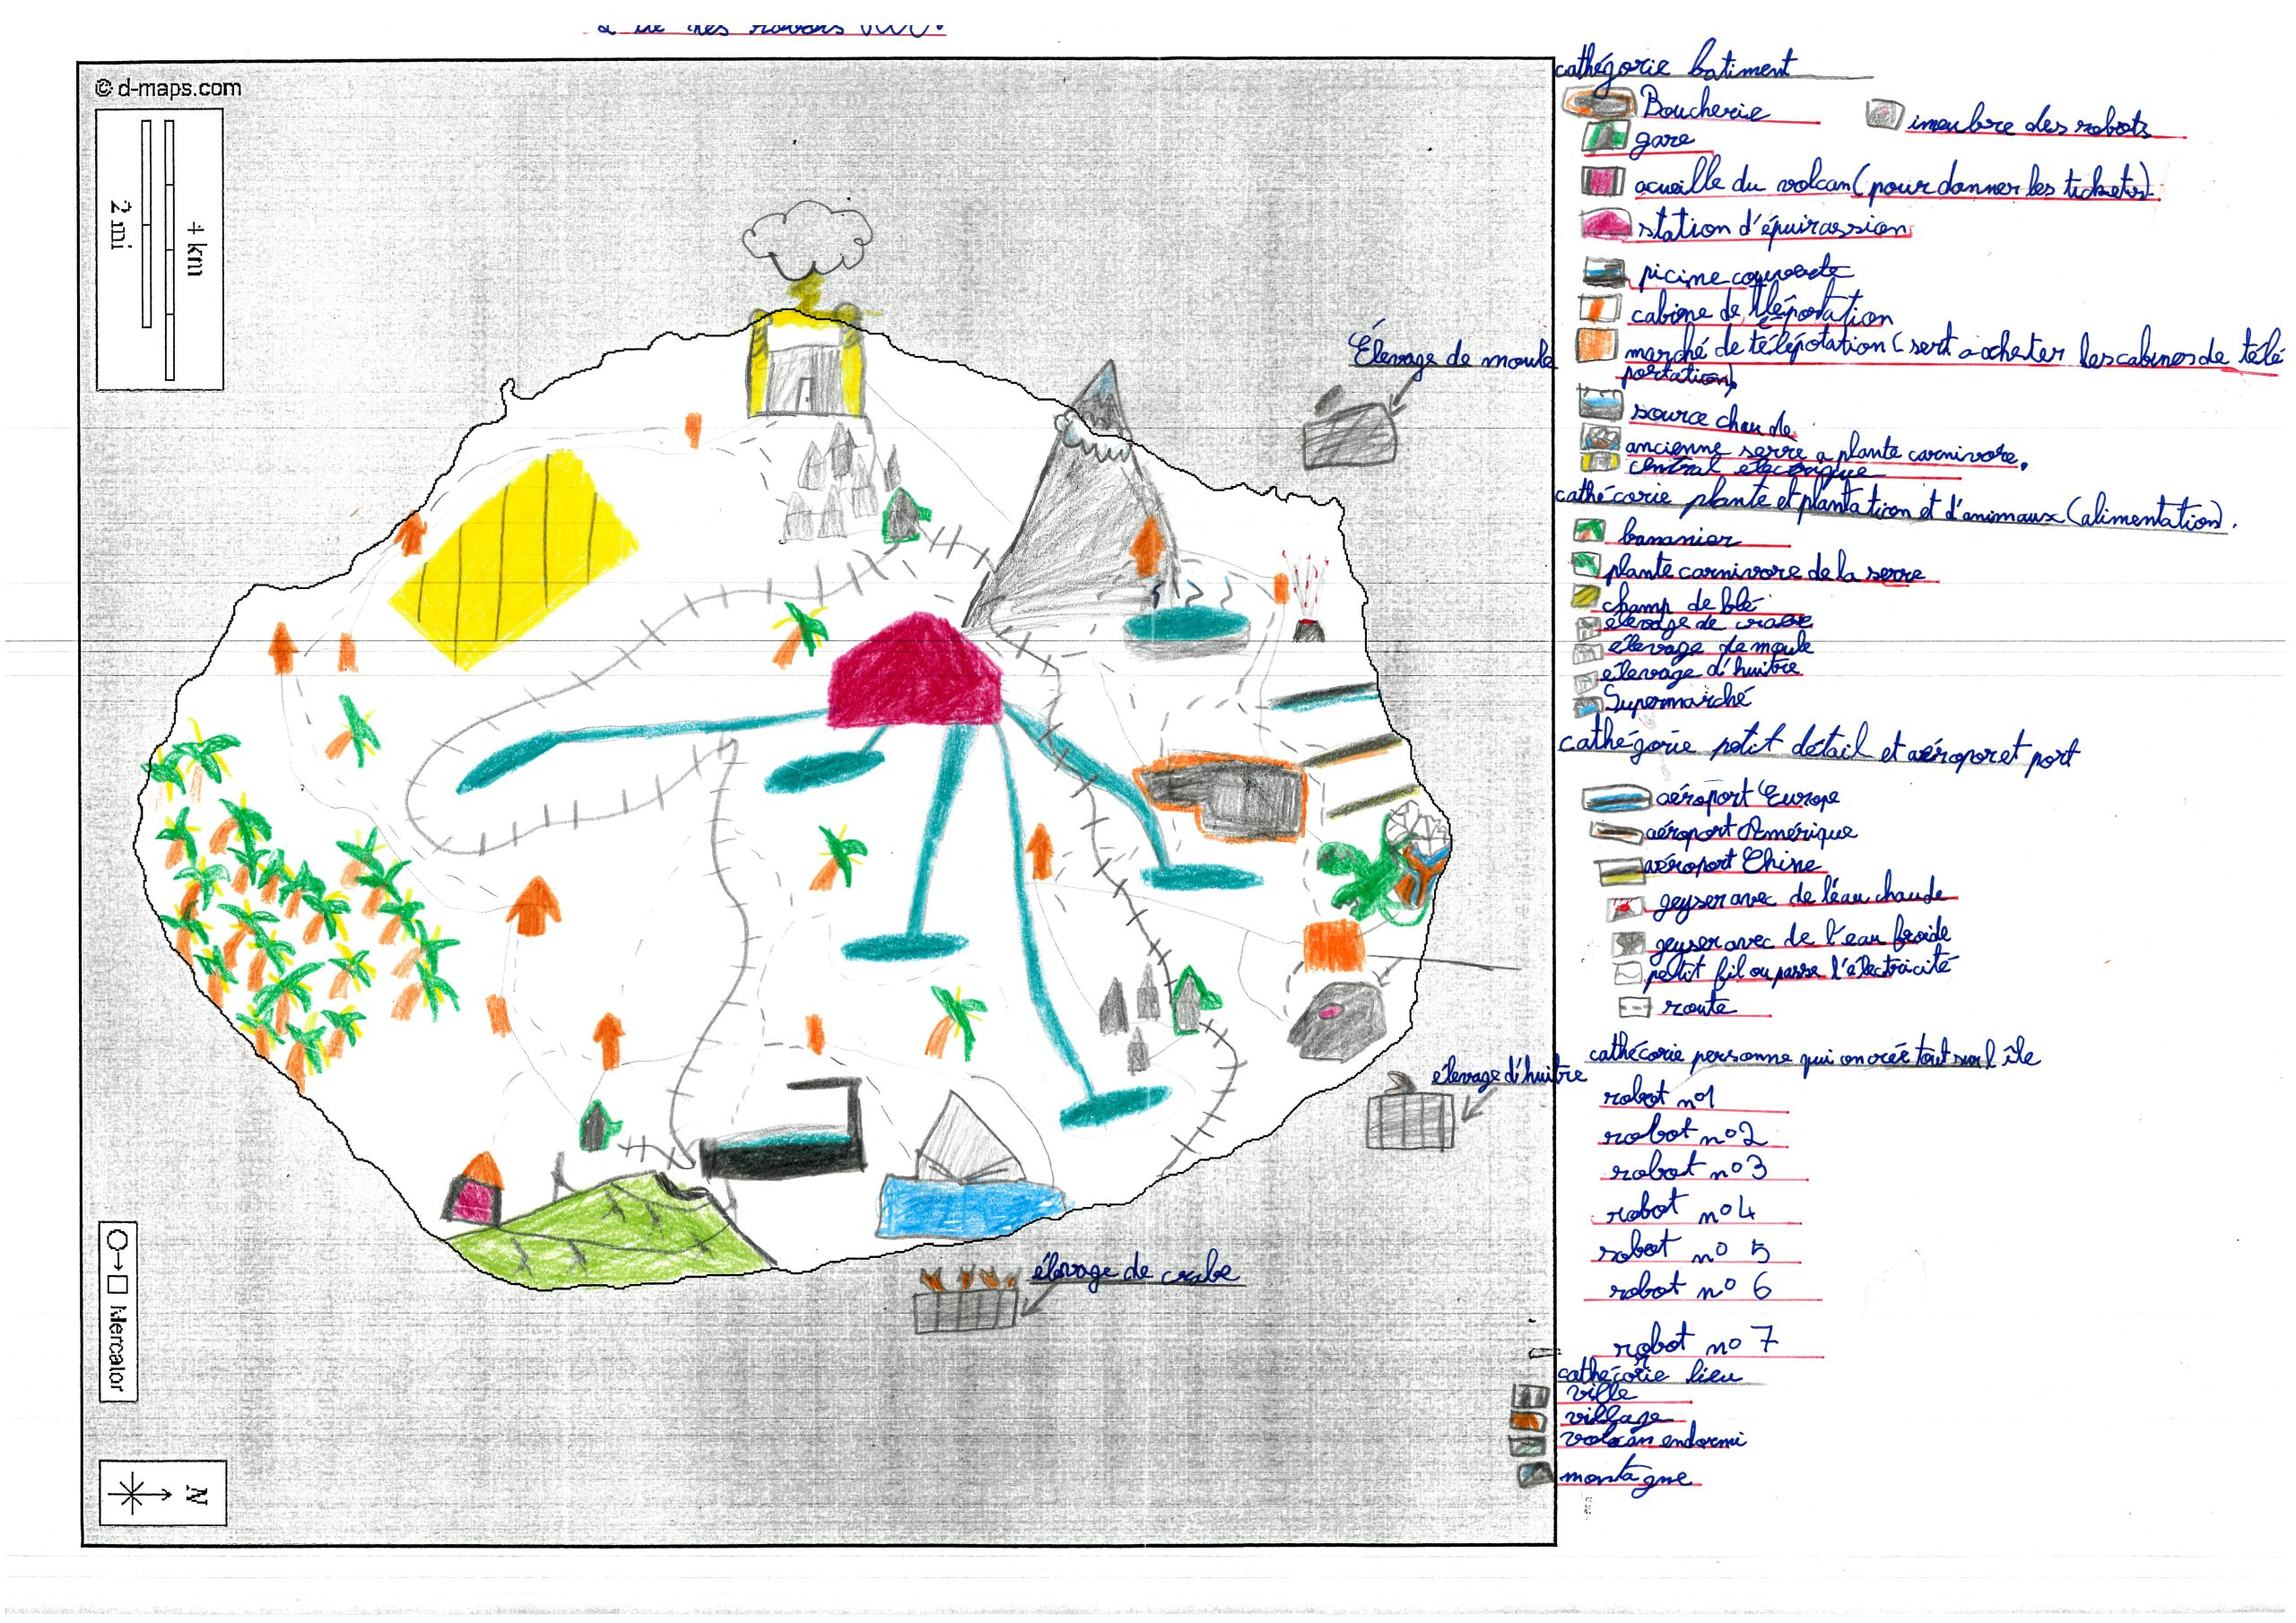 © d-maps.com
4 km
2 mi
Élevage de moule
élevage d'huitre
élevage de crabe
Mercator
N
cathégorie batiment
Boucherie
imeubre des robots
gare
acueille du volcan (pour donner les tickets).
station d'épuirassion
picine couverte
cabine de téléportation
marché de télépotation (sert a acheter les cabines de télé
portation).
source chaude
ancienne serre a plante carnivore.
central électrique
cathécorie plante et plantation et d'animaux (alimentation).
bananier
plante carnivore de la serre
champ de blé
élevage de crabe
élevage de moule
élevage d'huitre
Supermarché
cathégorie petit détail et aéroporet port
aéroport Europe
aéroport Amérique
aéroport Chine
geyser avec de l'eau chaude
geyser avec de l'eau froide
petit fil ou passe l'électricité
route
cathécorie personne qui on crée tout sur l'île
robot n°1
robot n°2
robot n°3
robot n°4
robot n° 5
robot n° 6
robot n° 7
cathécorie lieu
ville
village
volcan endormi
montagne